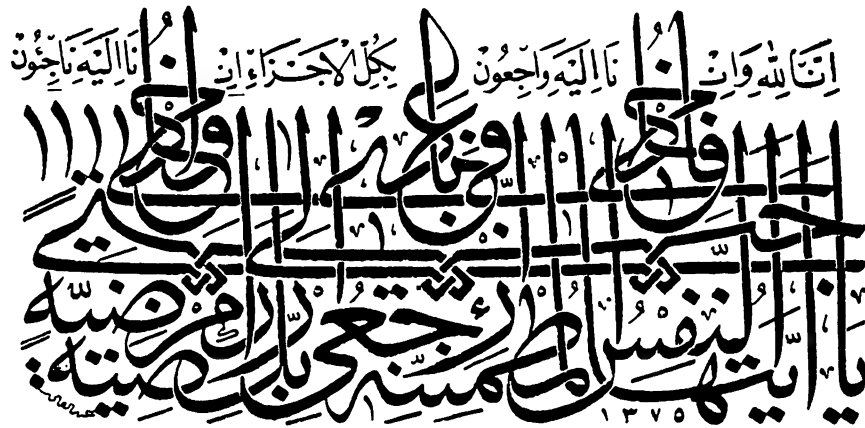 اِنَّا لِلّٰهِ وَاِنَّا اِلَيْهِ رَاجِعُونَ بِكُلِّ الْاَجْزَاءِ اِنَّا اِلَيْهِ
يا ايتها النفس المطمئنة ارجعي الى ربك راضية مرضية
فادخلي في عبادي وادخلي جنتي
١٣٧٥